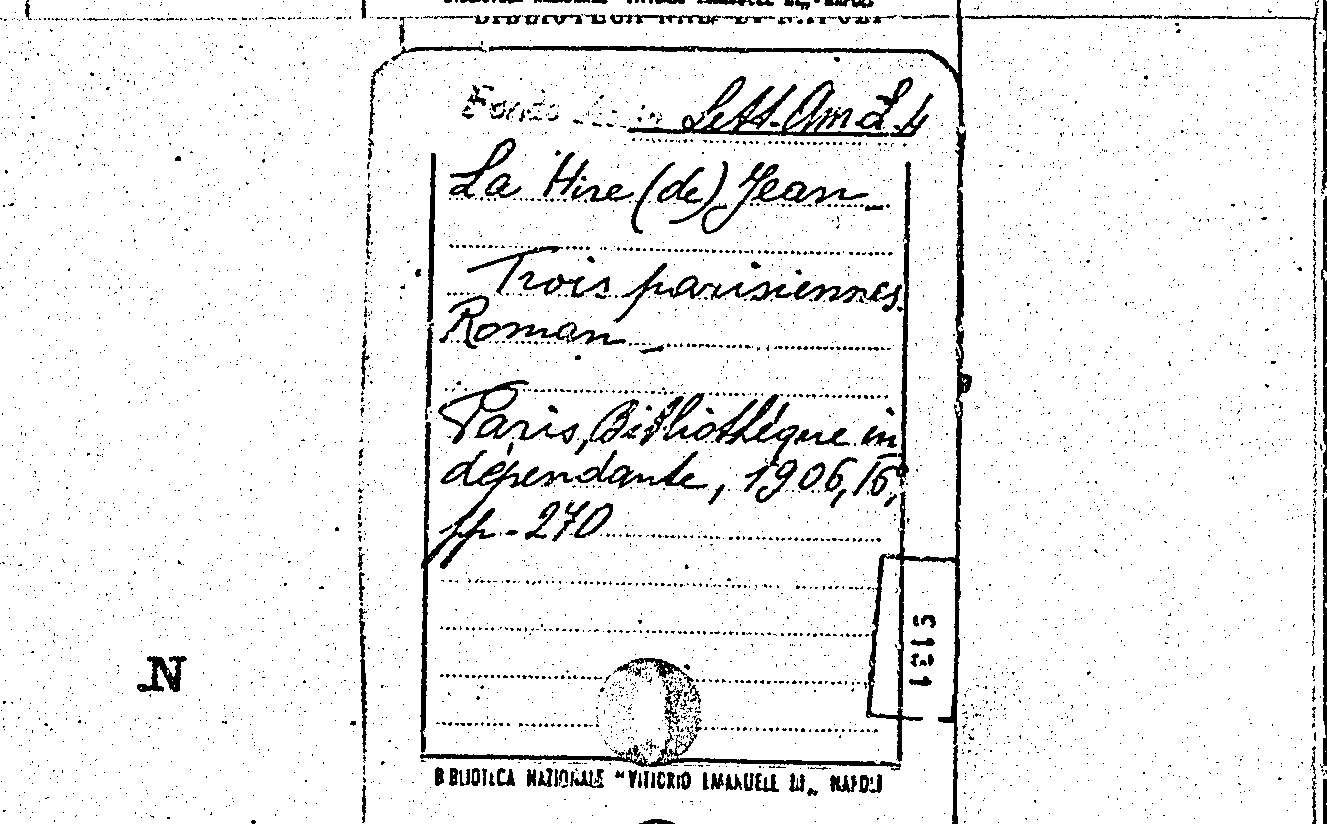 Fondo
Sett. Am. L. 4
La Hire (de) Jean
Trois parisiennes.
Roman_
Paris, Bibliothèque in
dépendante, 1906, 16°,
pp. 270
5131
N
BIBLIOTECA NAZIONALE "VITTORIO EMANUELE III„ NAPOLI